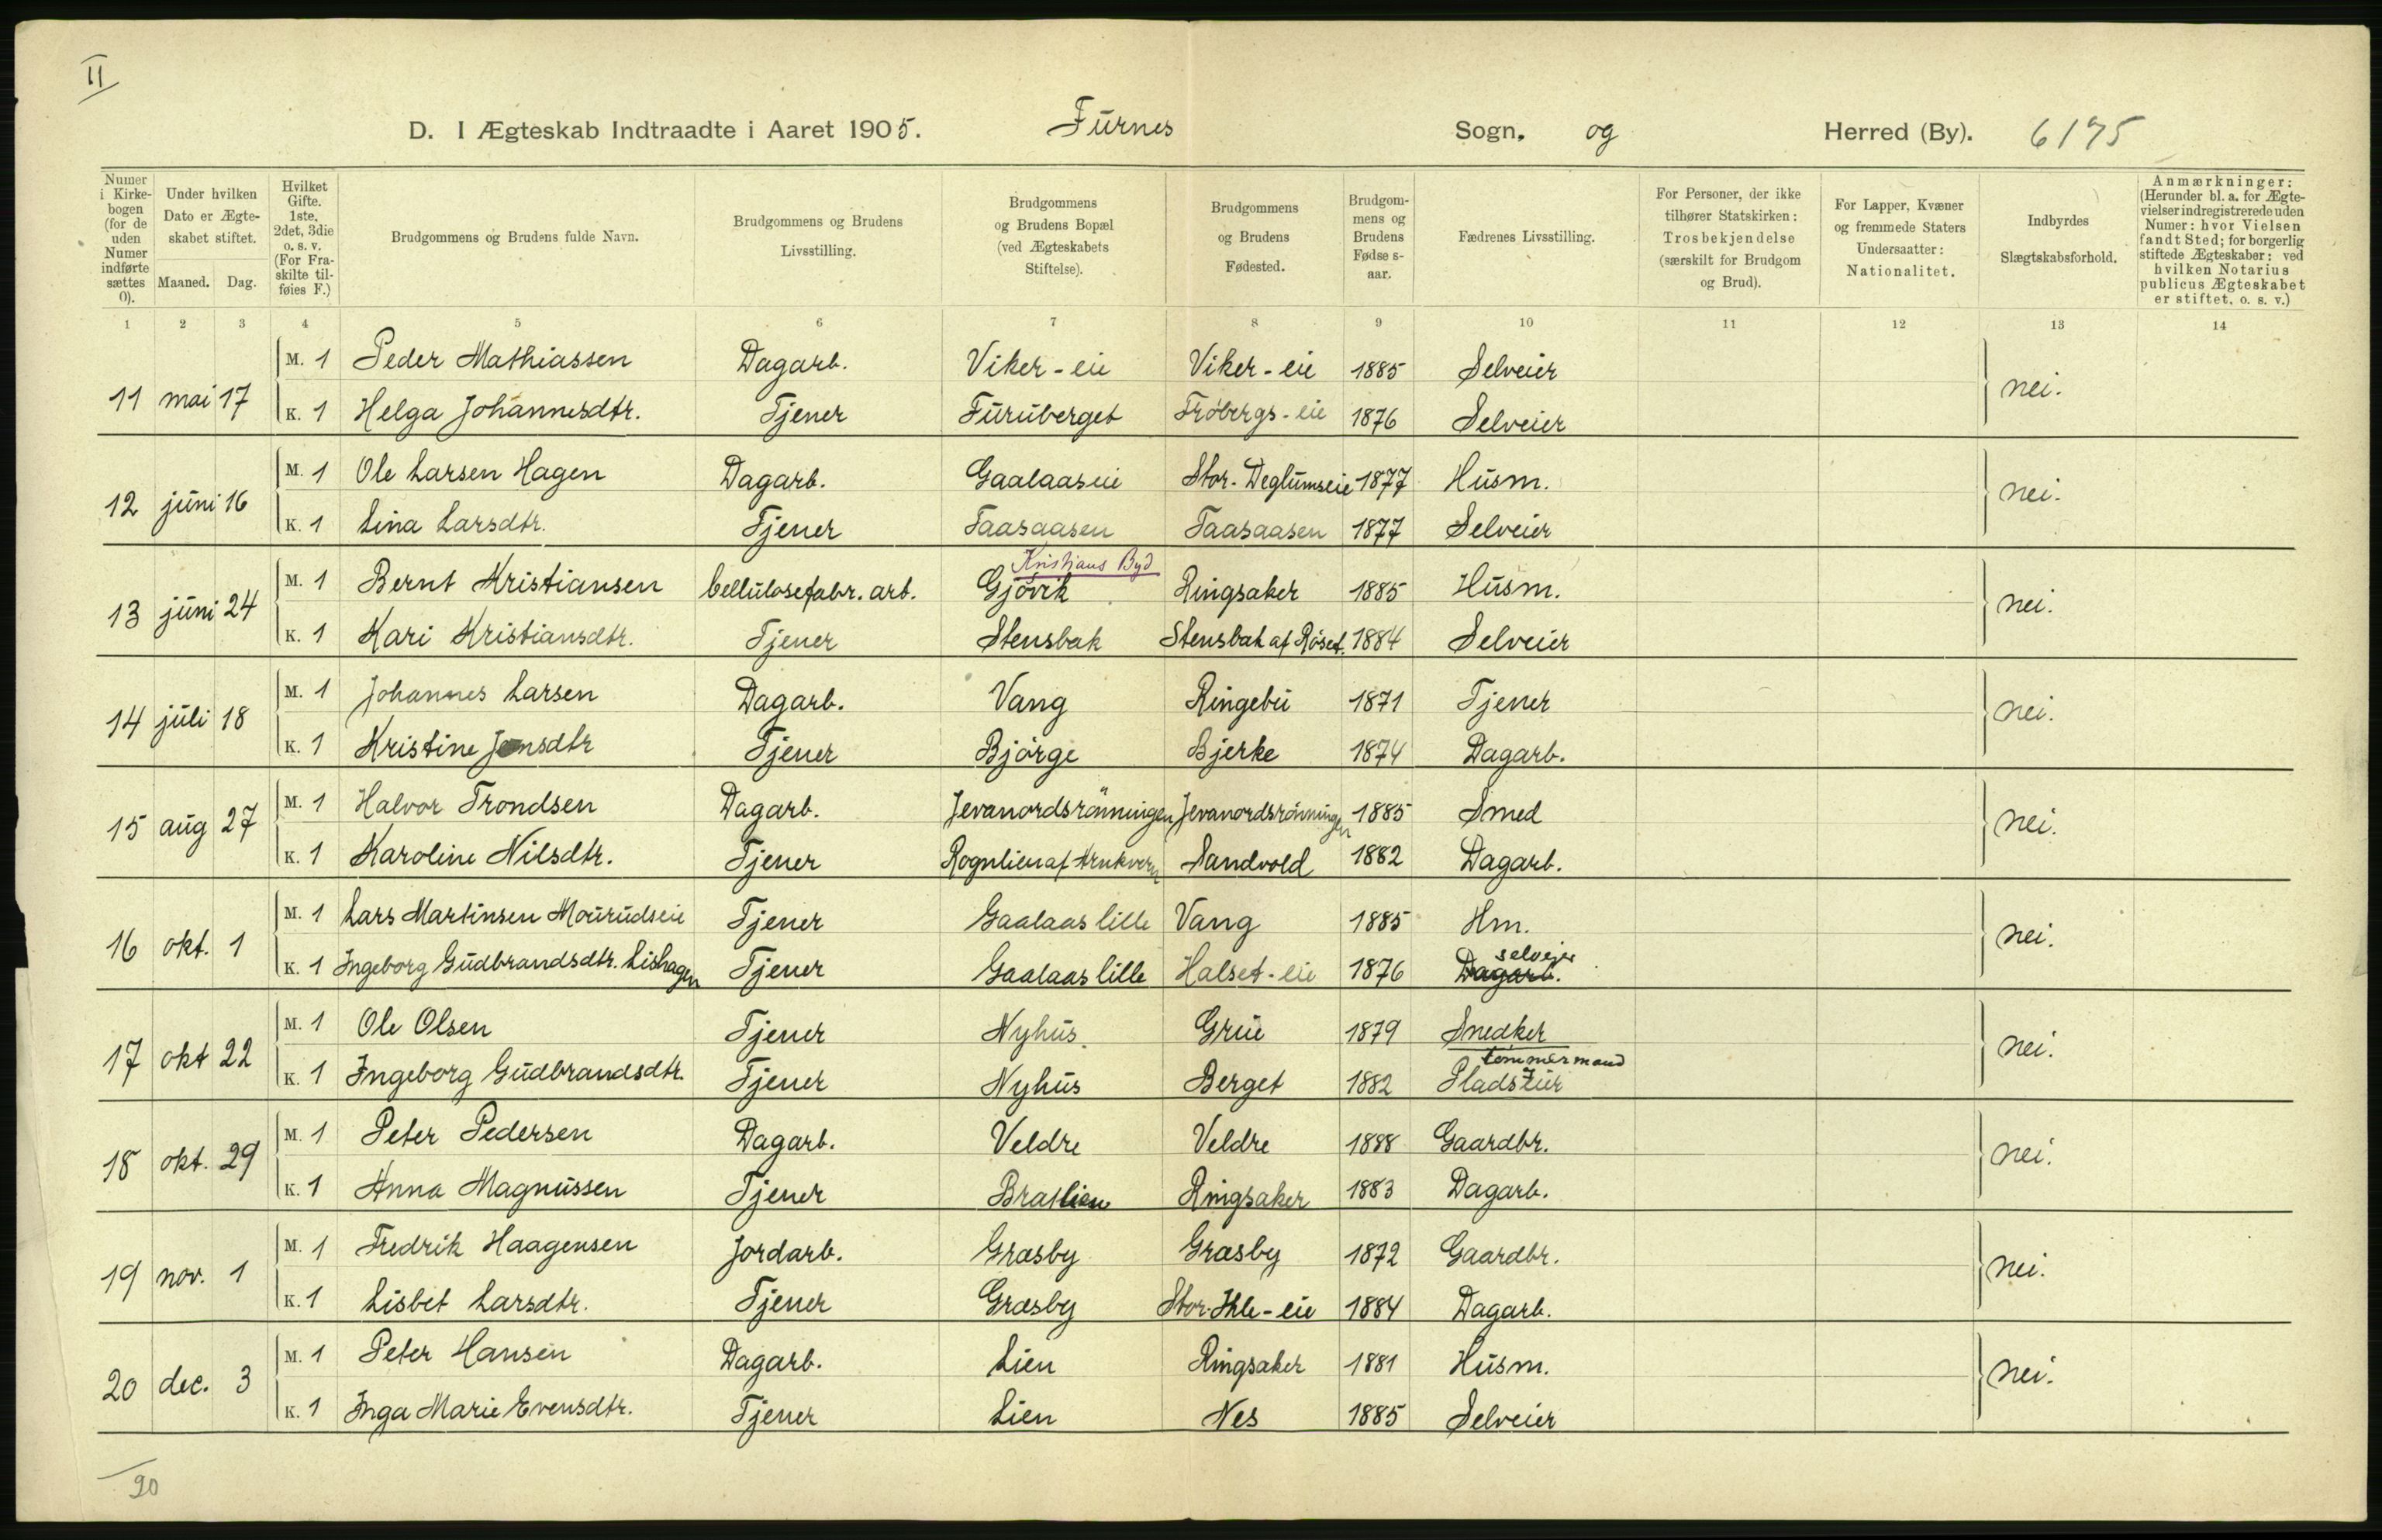 II
D. I Ægteskab Indtraadte i Aaret 1905. Furnes Sogn, og Herred (By). 6175
Numer i Kirkebogen (for de uden Numer indførte sættes 0).
Under hvilken Dato er Ægteskabet stiftet.
Maaned. Dag.
Hvilket Gifte. 1ste, 2det, 3die o. s. v. (For Fraskilte tilføies F.)
Brudgommens og Brudens fulde Navn.
Brudgommens og Brudens Livsstilling.
Brudgommens og Brudens Bopæl (ved Ægteskabets Stiftelse).
Brudgommens og Brudens Fødested.
Brudgommens og Brudens Fødselsaar.
Fædrenes Livsstilling.
For Personer, der ikke tilhører Statskirken: Trosbekjendelse (særskilt for Brudgom og Brud).
For Lapper, Kvæner og fremmede Staters Undersaatter: Nationalitet.
Indbyrdes Slægtskabsforhold.
Anmærkninger: (Herunder bl. a. for Ægtevielser indregistrerede uden Numer: hvor Vielsen fandt Sted; for borgerlig stiftede Ægteskaber: ved hvilken Notarius publicus Ægteskabet er stiftet, o. s. v.)
1 2 3 4 5 6 7 8 9 10 11 12 13 14
M. 1 Peder Mathiassen Dagarb. Viker-eie Viker-eie 1885 Selveier
11 mai 17 nei.
K. 1 Helga Johannesdtr. Tjener Furuberget Frobergs-eie 1876 Selveier
M. 1 Ole Larsen Hagen Dagarb. Gaalaaseie Stor-Deglumseie 1877 Husm.
12 juni 16 nei.
K. 1 Lina Larsdtr. Tjener Taasaasen Taasaasen 1877 Selveier
Kristians Byd
M. 1 Bernt Kristiansen Cellulosefabr. arb. Gjøvik Ringsaker 1885 Husm.
13 juni 24 nei.
K. 1 Kari Kristiansdtr. Tjener Stensbak Stensbak af Röset. 1884 Selveier
M. 1 Johannes Larsen Dagarb. Vang Ringebu 1871 Tjener
14 juli 18 nei.
K. 1 Kristine Jensdtr Tjener Bjørge Bjerke 1874 Dagarb.
M. 1 Halvor Trondsen Dagarb. Jevanordsrönningen Jevanordsrönningen 1885 Smed
15 aug 27 nei.
K. 1 Karoline Nilsdtr. Tjener Rognlien af Arnkvern Sandvold 1882 Dagarb.
M. 1 Lars Martinsen Mourudseie Tjener Gaalaas lille Vang 1885 Hm.
16 okt. 1 nei.
selveier
K. 1 Ingeborg Gudbrandsdtr. Lishagen Tjener Gaalaas lille Halset-eie 1876 Dagarb.
M. 1 Ole Olsen Tjener Nyhus. Grue 1879 Snedker
17 okt 22 nei.
tømmermand
K. 1 Ingeborg Gudbrandsdtr. Tjener Nyhus Berget 1882
M. 1 Peter Pedersen Dagarb. Veldre Veldre 1888 Gaardbr.
18 okt. 29 nei.
K. 1 Anna Magnussen Tjener Bratlien Ringsaker 1883 Dagarb.
M. 1 Fredrik Haagensen Jordarb. Græsby Græsby 1872 Gaardbr.
19 nov. 1 nei.
K. 1 Lisbet Larsdtr. Tjener Græsby Stor-Ihle-eie 1884 Dagarb.
M. 1 Peter Hansen Dagarb. Lien Ringsaker 1881 Husm.
20 dec. 3 nei.
K. 1 Inga Marie Evensdtr. Tjener Lien Nes 1885 Selveier
20